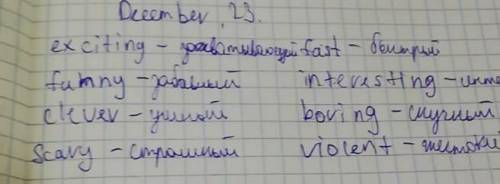 December, 23.
exciting – захватывающий fast – быстрый
funny – забавный interesting – инте
clever – умный boring – скучный
scary – страшный violent – жестоки